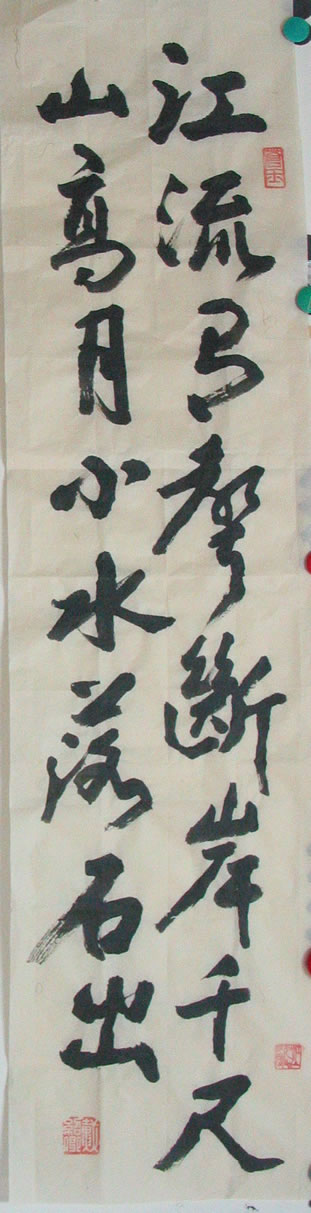 江流有聲斷岸千尺
山高月小水落石出